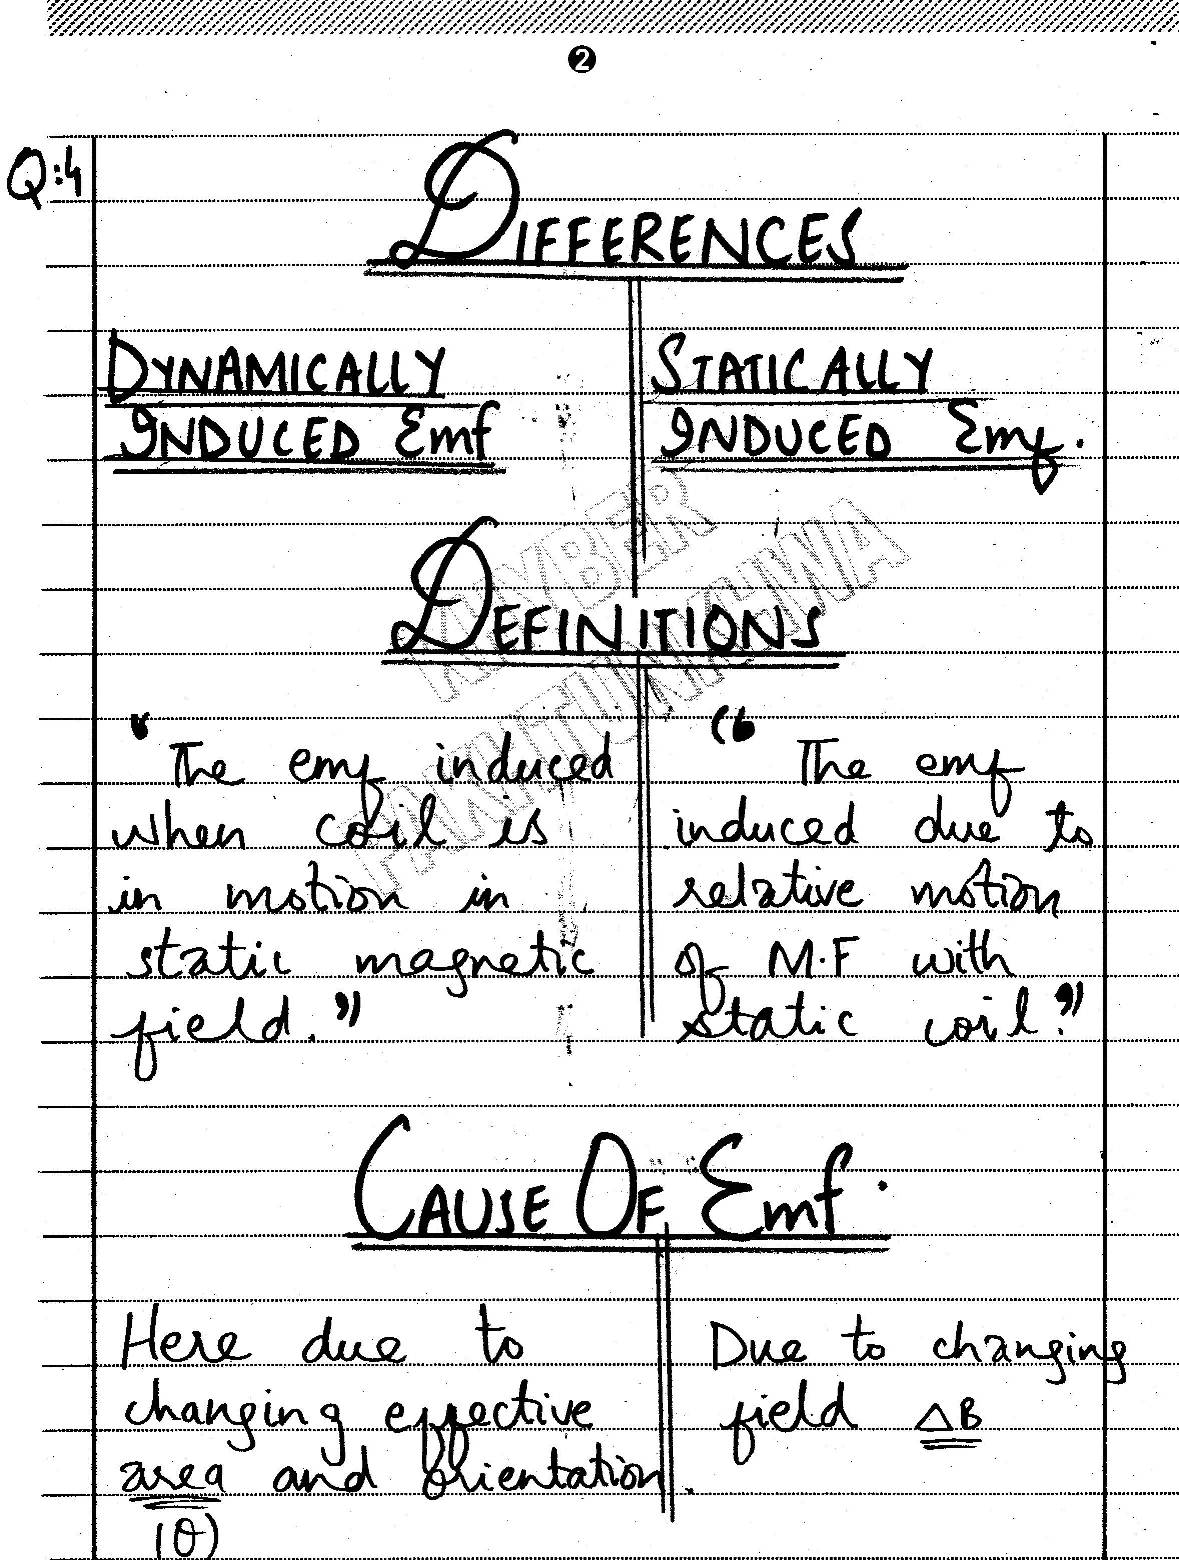 2
Q:4
DIFFERENCES
DYNAMICALLY
INDUCED Emf
STATICALLY
INDUCED Emf.
KHYBER
PAKHTUNKHWA
DEFINITIONS
"The emf induced
when coil is
in motion in
static magnetic
field."
"The emf
induced due to
relative motion
of M.F with
static coil."
CAUSE OF Emf.
Here due to
changing effective
area and orientation.
(θ)
Due to changing
field ΔB